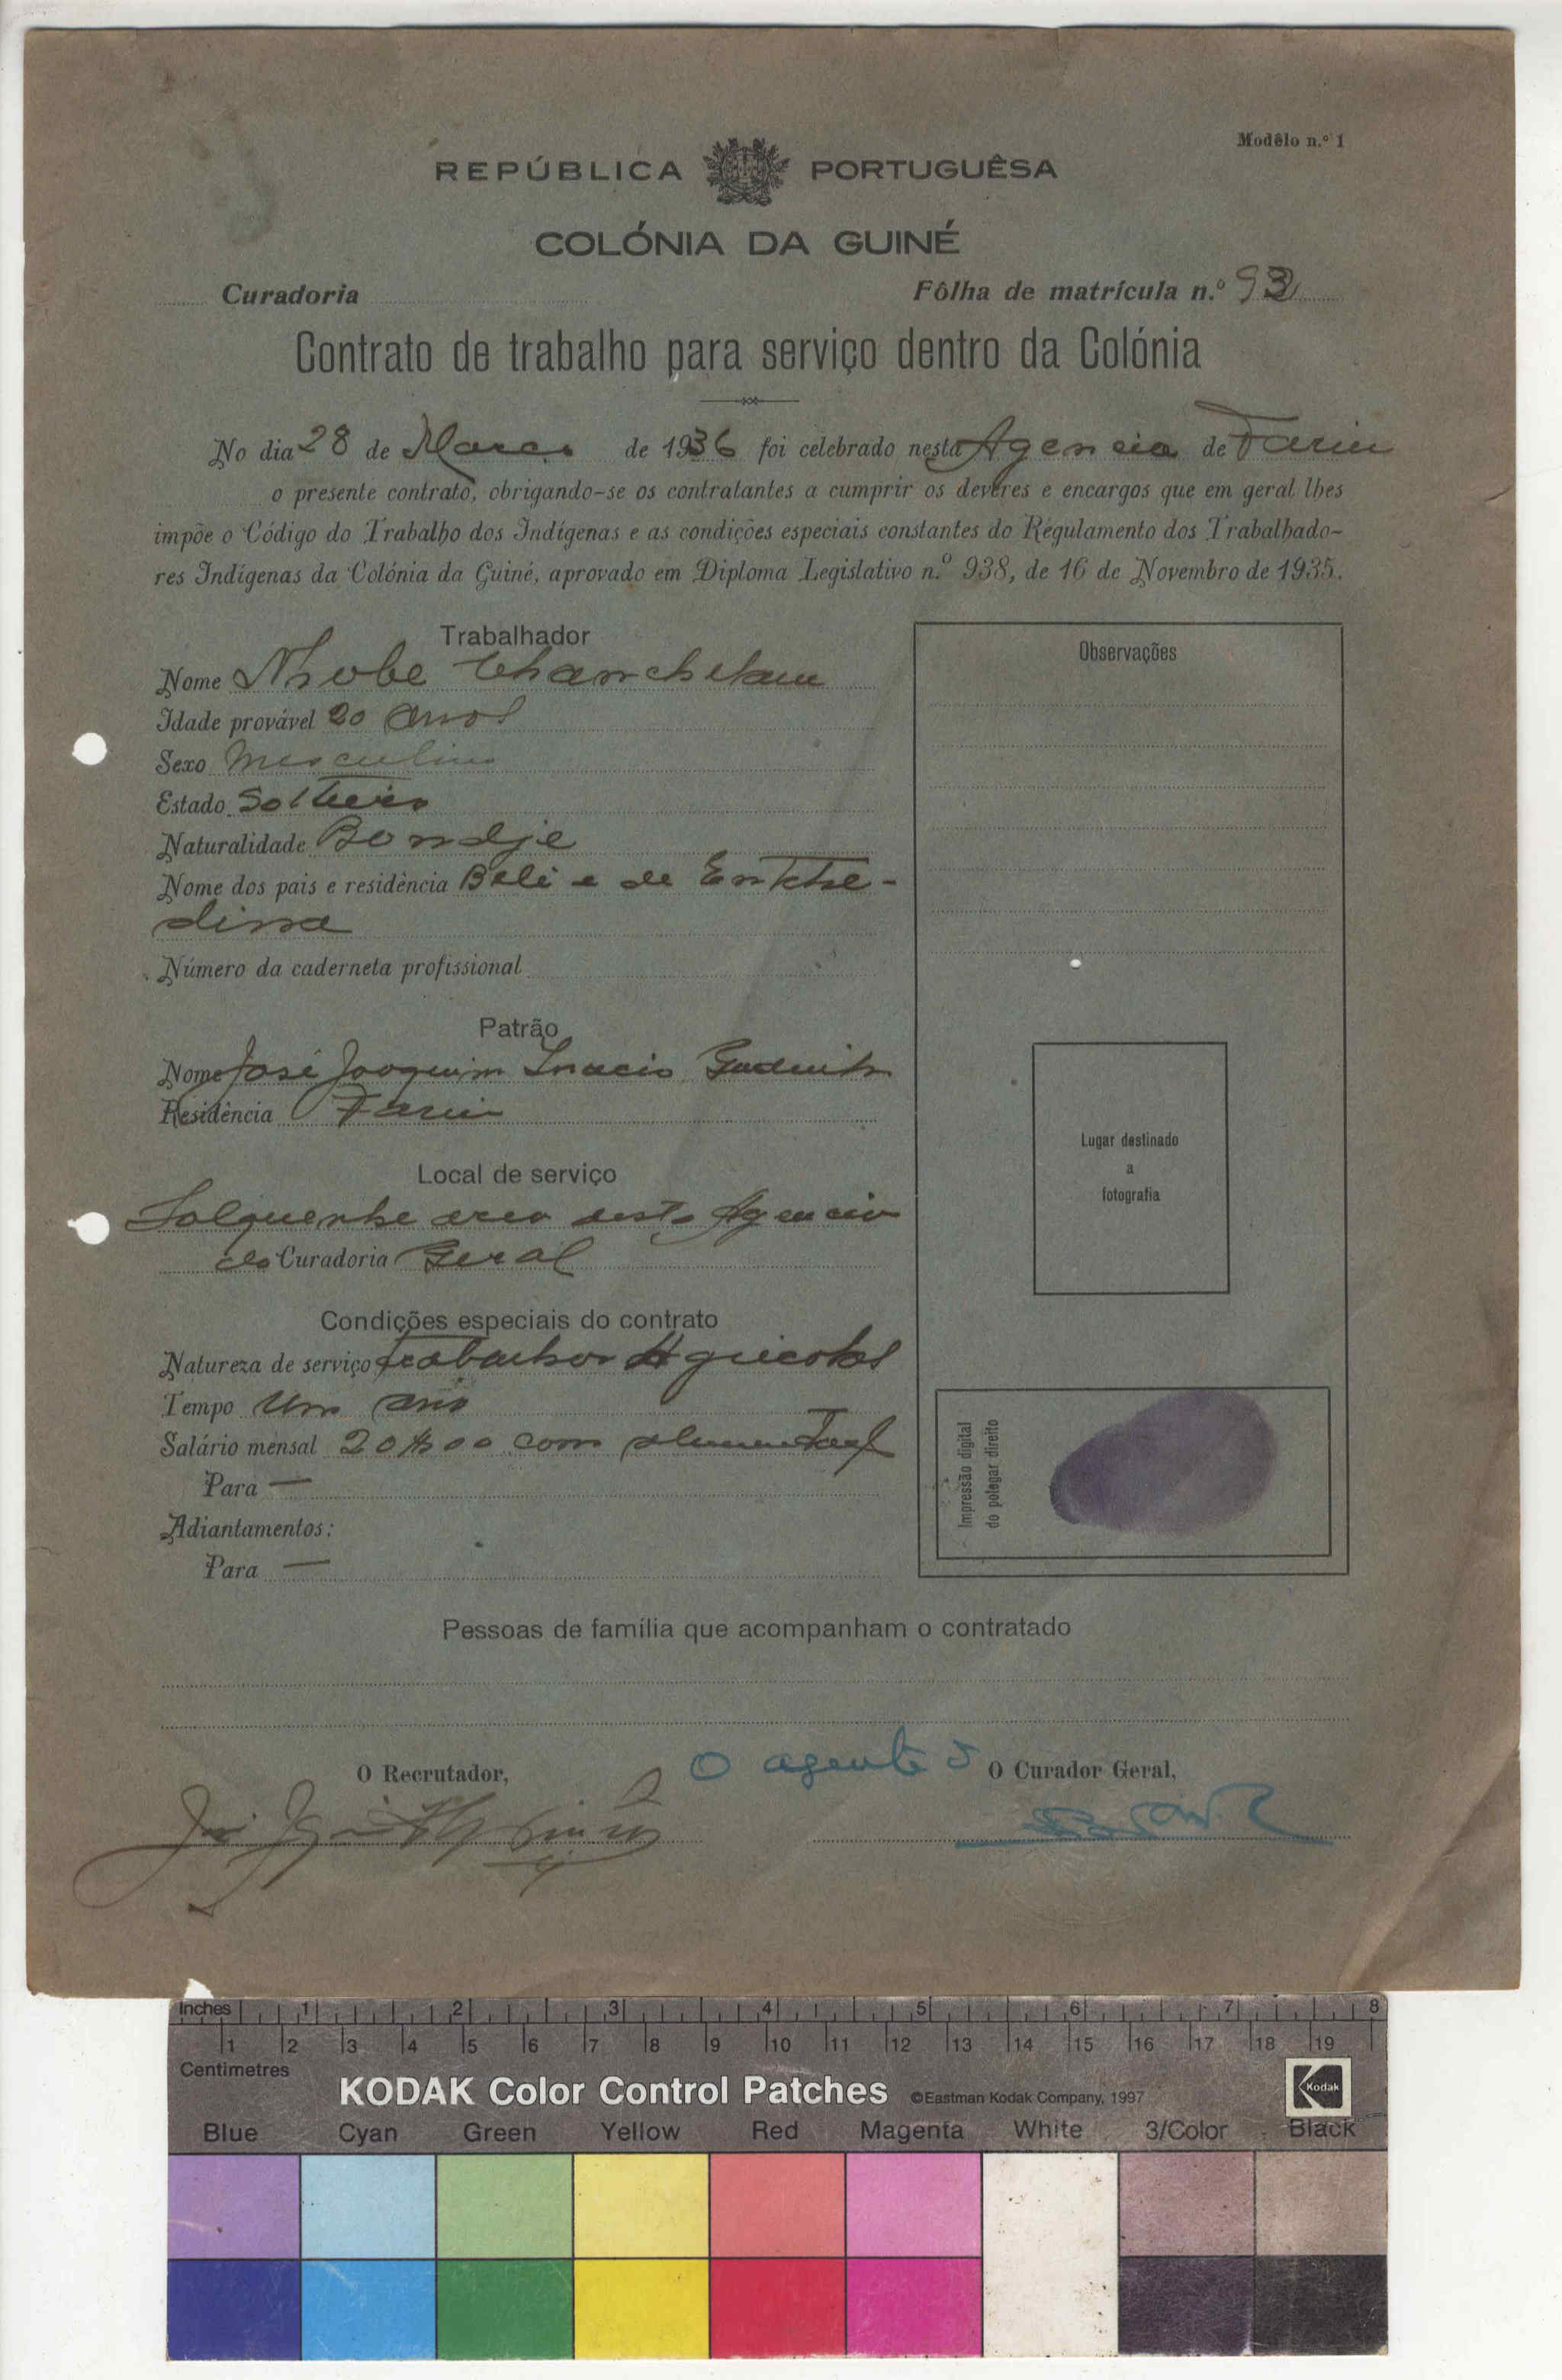 Modêlo n.º 1
REPÚBLICA PORTUGUÊSA
COLÓNIA DA GUINÉ
Curadoria Fôlha de matrícula n.º 93
Contrato de trabalho para serviço dentro da Colónia
No dia 28 de Março de 1936 foi celebrado nesta Agencia de Farim
o presente contrato, obrigando-se os contratantes a cumprir os deveres e encargos que em geral lhes
impõe o Código do Trabalho dos Indígenas e as condições especiais constantes do Regulamento dos Trabalhado-
res Indígenas da Colónia da Guiné, aprovado em Diploma Legislativo n.º 938, de 16 de Novembro de 1935.
Trabalhador
Nome
Idade provável 20 anos
Sexo Masculino
Estado Solteiro
Naturalidade Bondje
Nome dos pais e residência Beli e de
Número da caderneta profissional
Patrão
Nome José Joaquim Inacio
Residência Farim
Local de serviço
area desta Agencia
da Curadoria Geral
Condições especiais do contrato
Natureza de serviço trabalhos Agricolas
Tempo Um ano
Salário mensal 20$00 com
Para —
Adiantamentos:
Para —
Observações
Lugar destinado
a
fotografia
Impressão digital
do polegar direito
Pessoas de família que acompanham o contratado
O Recrutador, O agente O Curador Geral,
Inches 1 2 3 4 5 6 7 8
1 2 3 4 5 6 7 8 9 10 11 12 13 14 15 16 17 18 19
Centimetres
KODAK Color Control Patches ©Eastman Kodak Company, 1997 Kodak
Blue Cyan Green Yellow Red Magenta White 3/Color Black